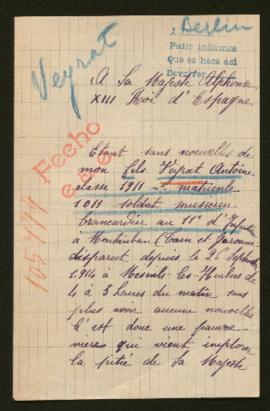 Berlin
A
Pedir informes
Que se hace así
Devolver
Veyrat
A Sa Majesté Alphonse
XIII Roi d'Espagne
Fecho
105.411
Etant sans nouvelles de
mon fils Veyrat Antoine
classe 1911 matricule
1011 soldat musicien
brancardier au 11e d'Infrie
à Montauban (Tarn et Garonne
disparut depuis le 26 Septembre
1914 à Mesnil les Hurlus de
4 à 5 heures du matin sans
plus avoir aucune nouvelles
C'est donc une pauvre
mère qui vient implorer
la pitié de Sa Majesté